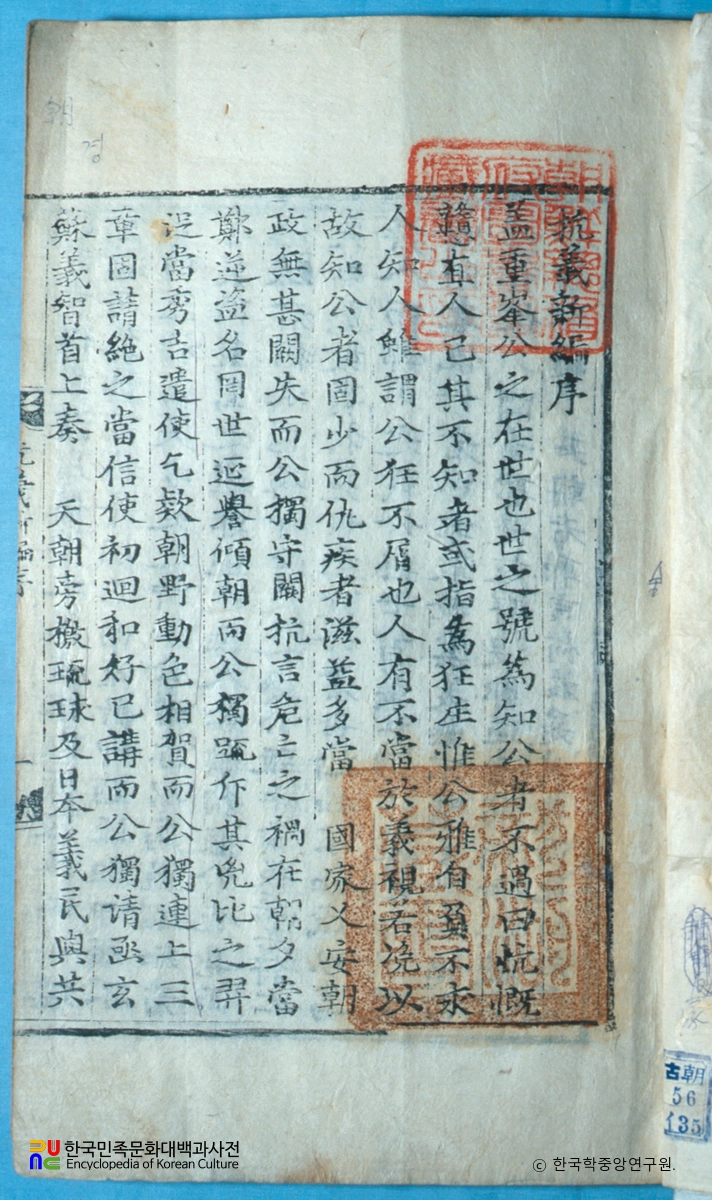 抗義新編序
盖重峯公之在世也世之號為知公者不過曰忼慨
戇直人已其不知者或指為狂生惟公雅自負不求
人知人雖謂公狂不屑也人有不當於義視若浼以
故知公者固少而仇疾者滋益多當 國家乂安朝
政無甚闕失而公獨守闕抗言危亡之禍在朝夕當
鄭逆盗名罔世延譽傾朝而公獨疏斥其兇比之羿
浞當秀吉遣使乞款朝野動色相賀而公獨連上三
章固請絶之當信使初迴和好已講而公獨请亟玄
蘇義智首上奏 天朝旁檄琉球及日本義民與共
朝
경
古朝
56
135
한국민족문화대백과사전
Encyclopedia of Korean Culture
© 한국학중앙연구원.